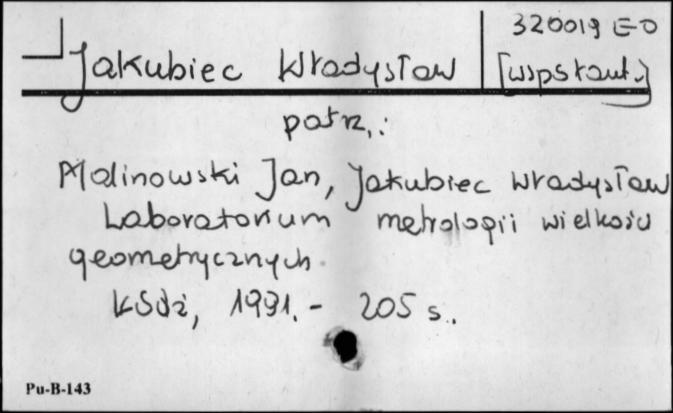 320019 E-O
Jakubiec Władysław [współaut.]
patrz:
Malinowski Jan, Jakubiec Władysław
Laboratorium metrologii wielkości
geometrycznych.
Łódź, 1991. - 205 s.
Pu-B-143